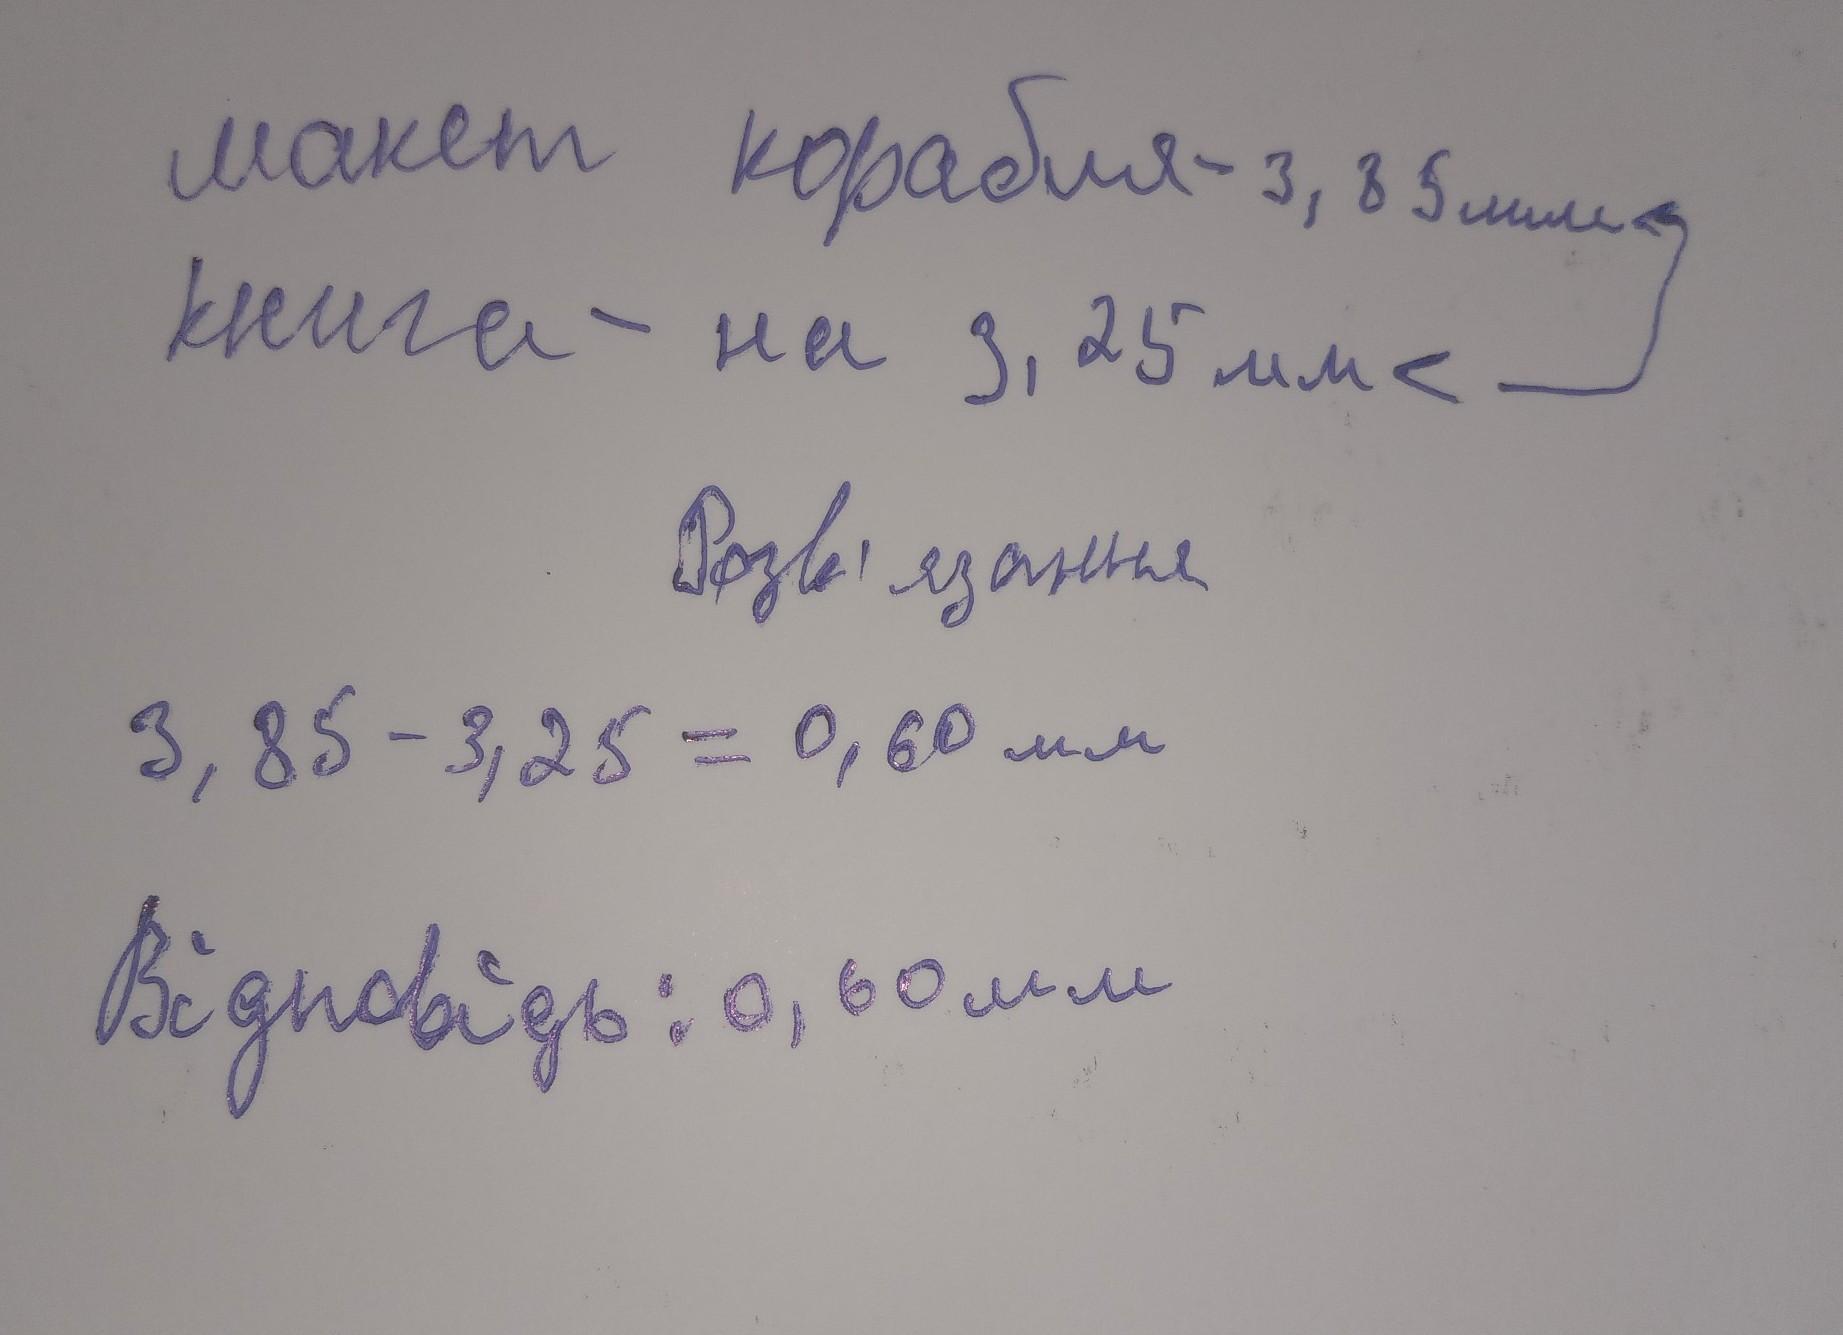 макет корабля - 3,85 мм <
книга - на 3,25 мм <
Розв'язання
3,85 - 3,25 = 0,60 мм
Відповідь: 0,60 мм